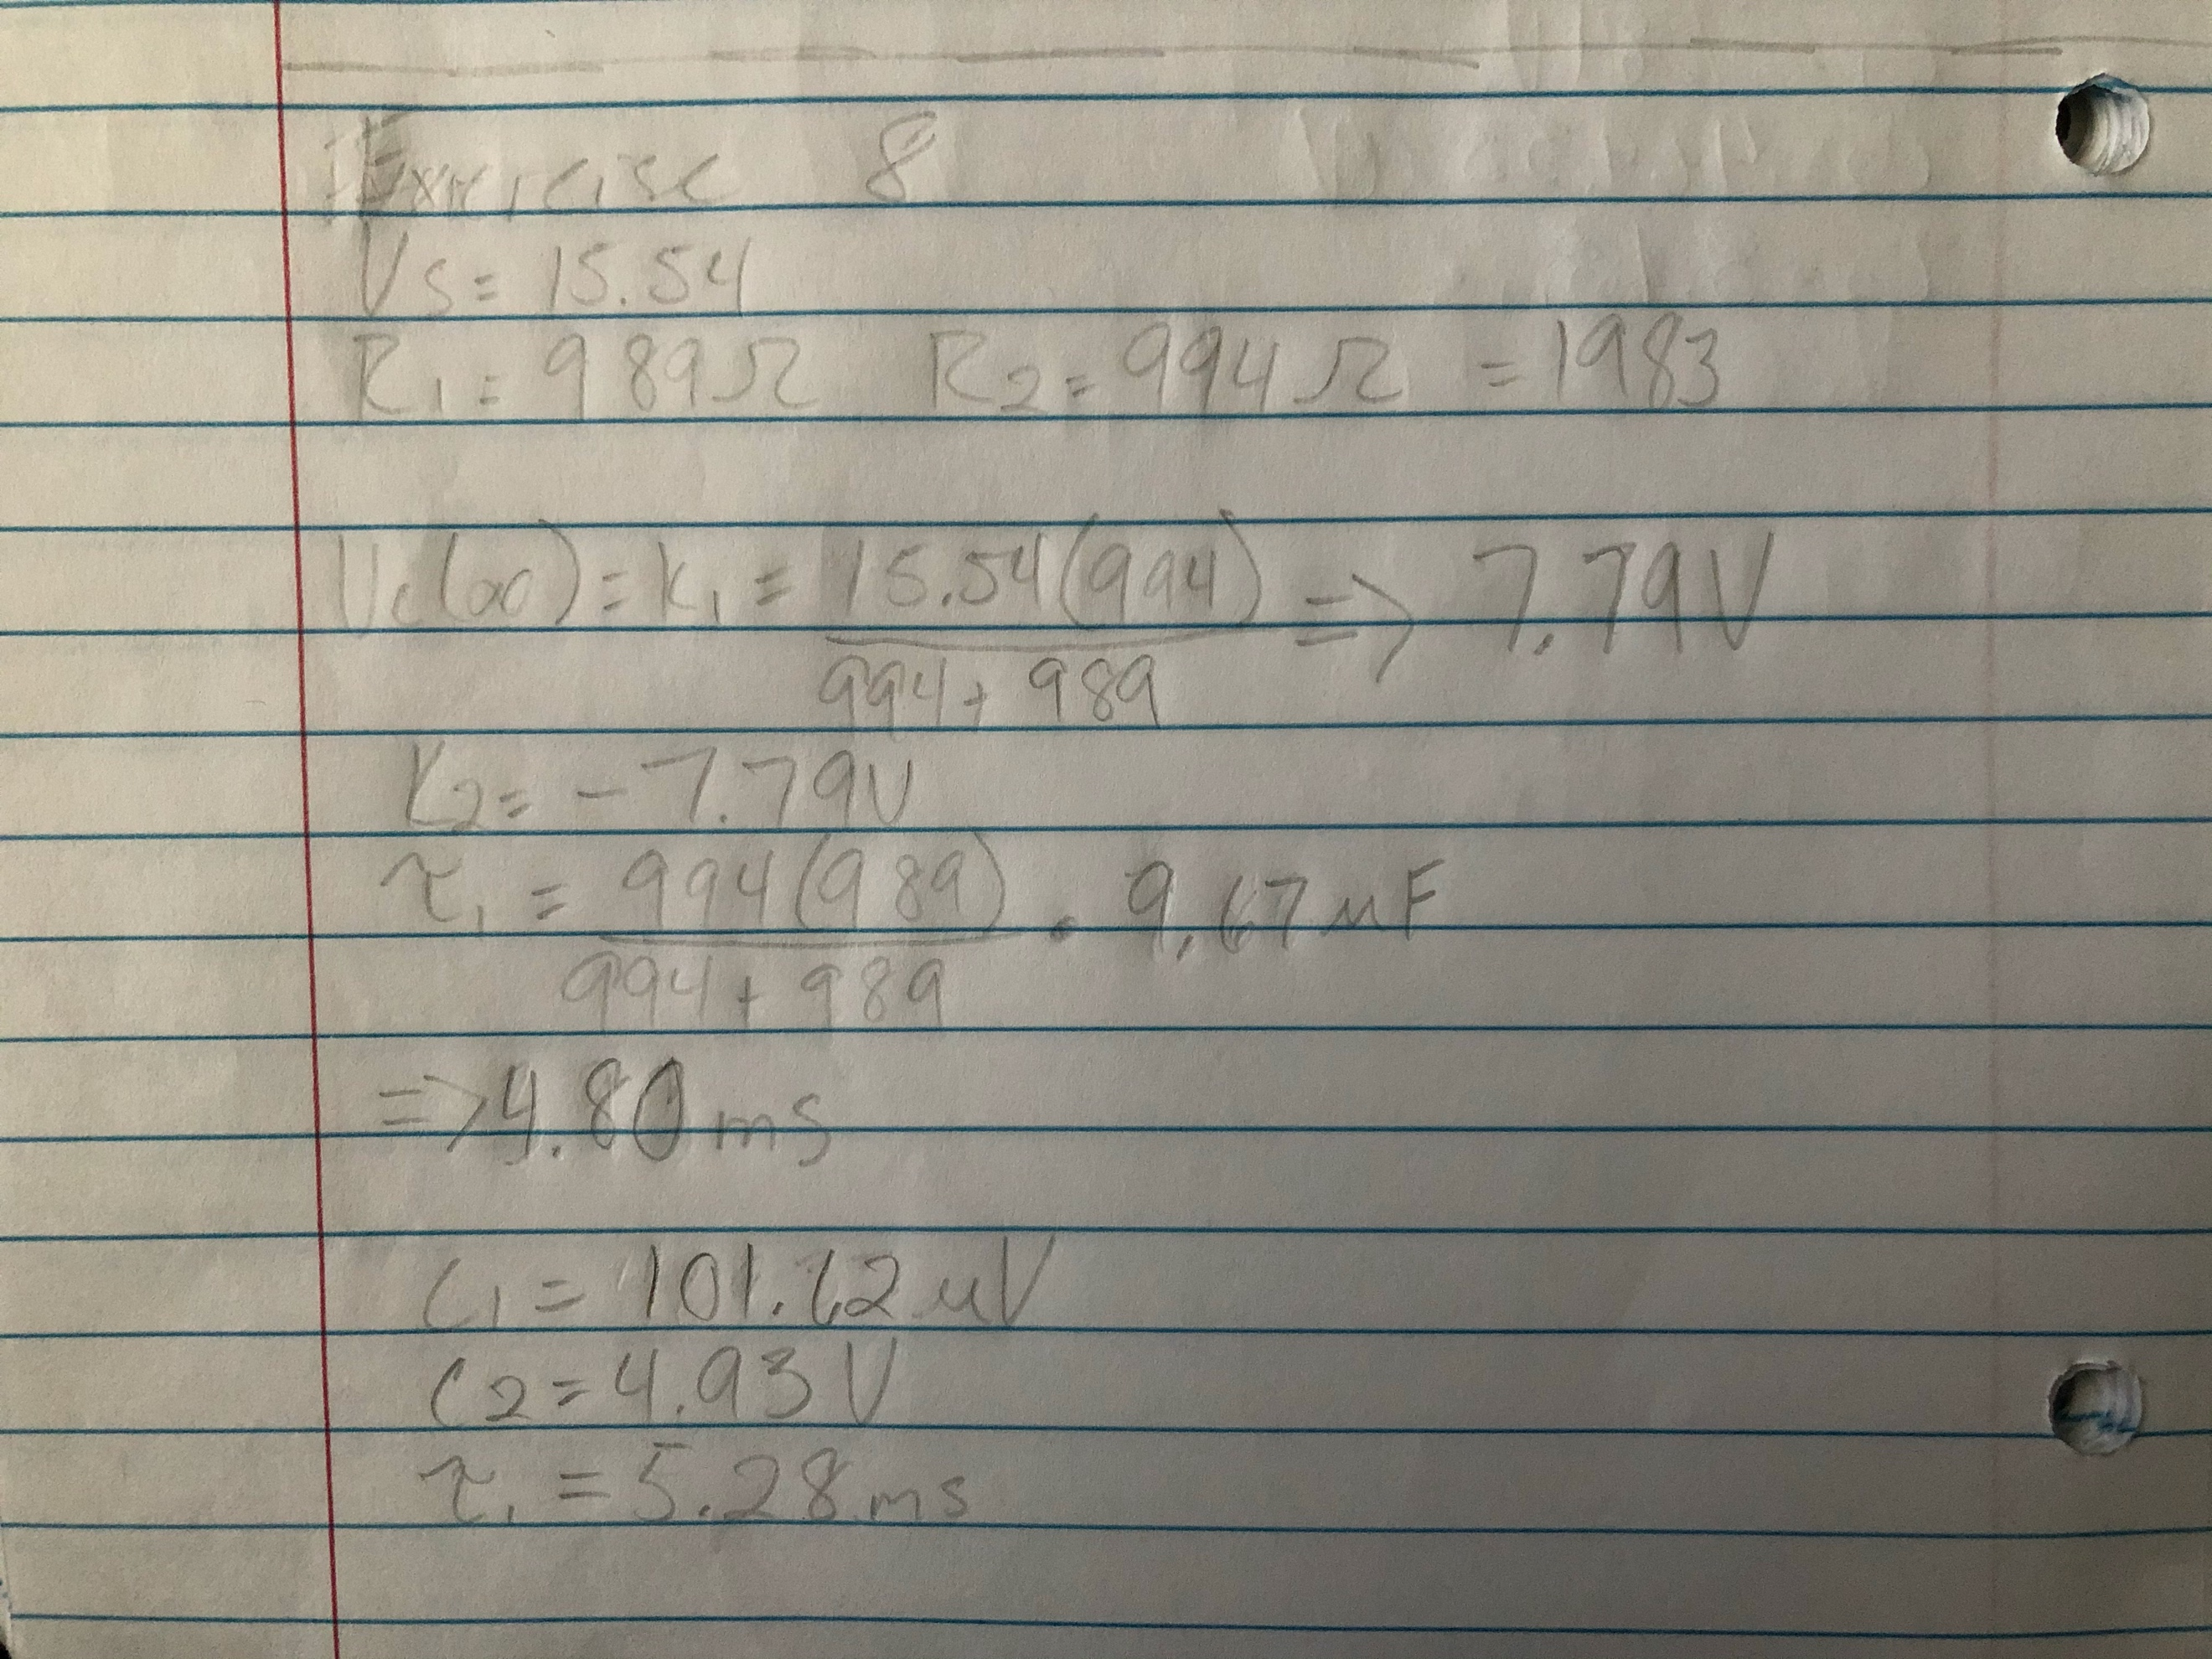 Exercise 8
Vs = 15.54
R1 = 989Ω R2 = 994Ω = 1983
Vc(∞) = K1 = 15.54(994) / 994 + 989 => 7.79V
K2 = -7.79V
τ1 = 994(989) / 994 + 989 • 9.67 μF
=> 4.80 ms
C1 = 101.62 μV
C2 = 4.93 V
τ1 = 5.28 ms